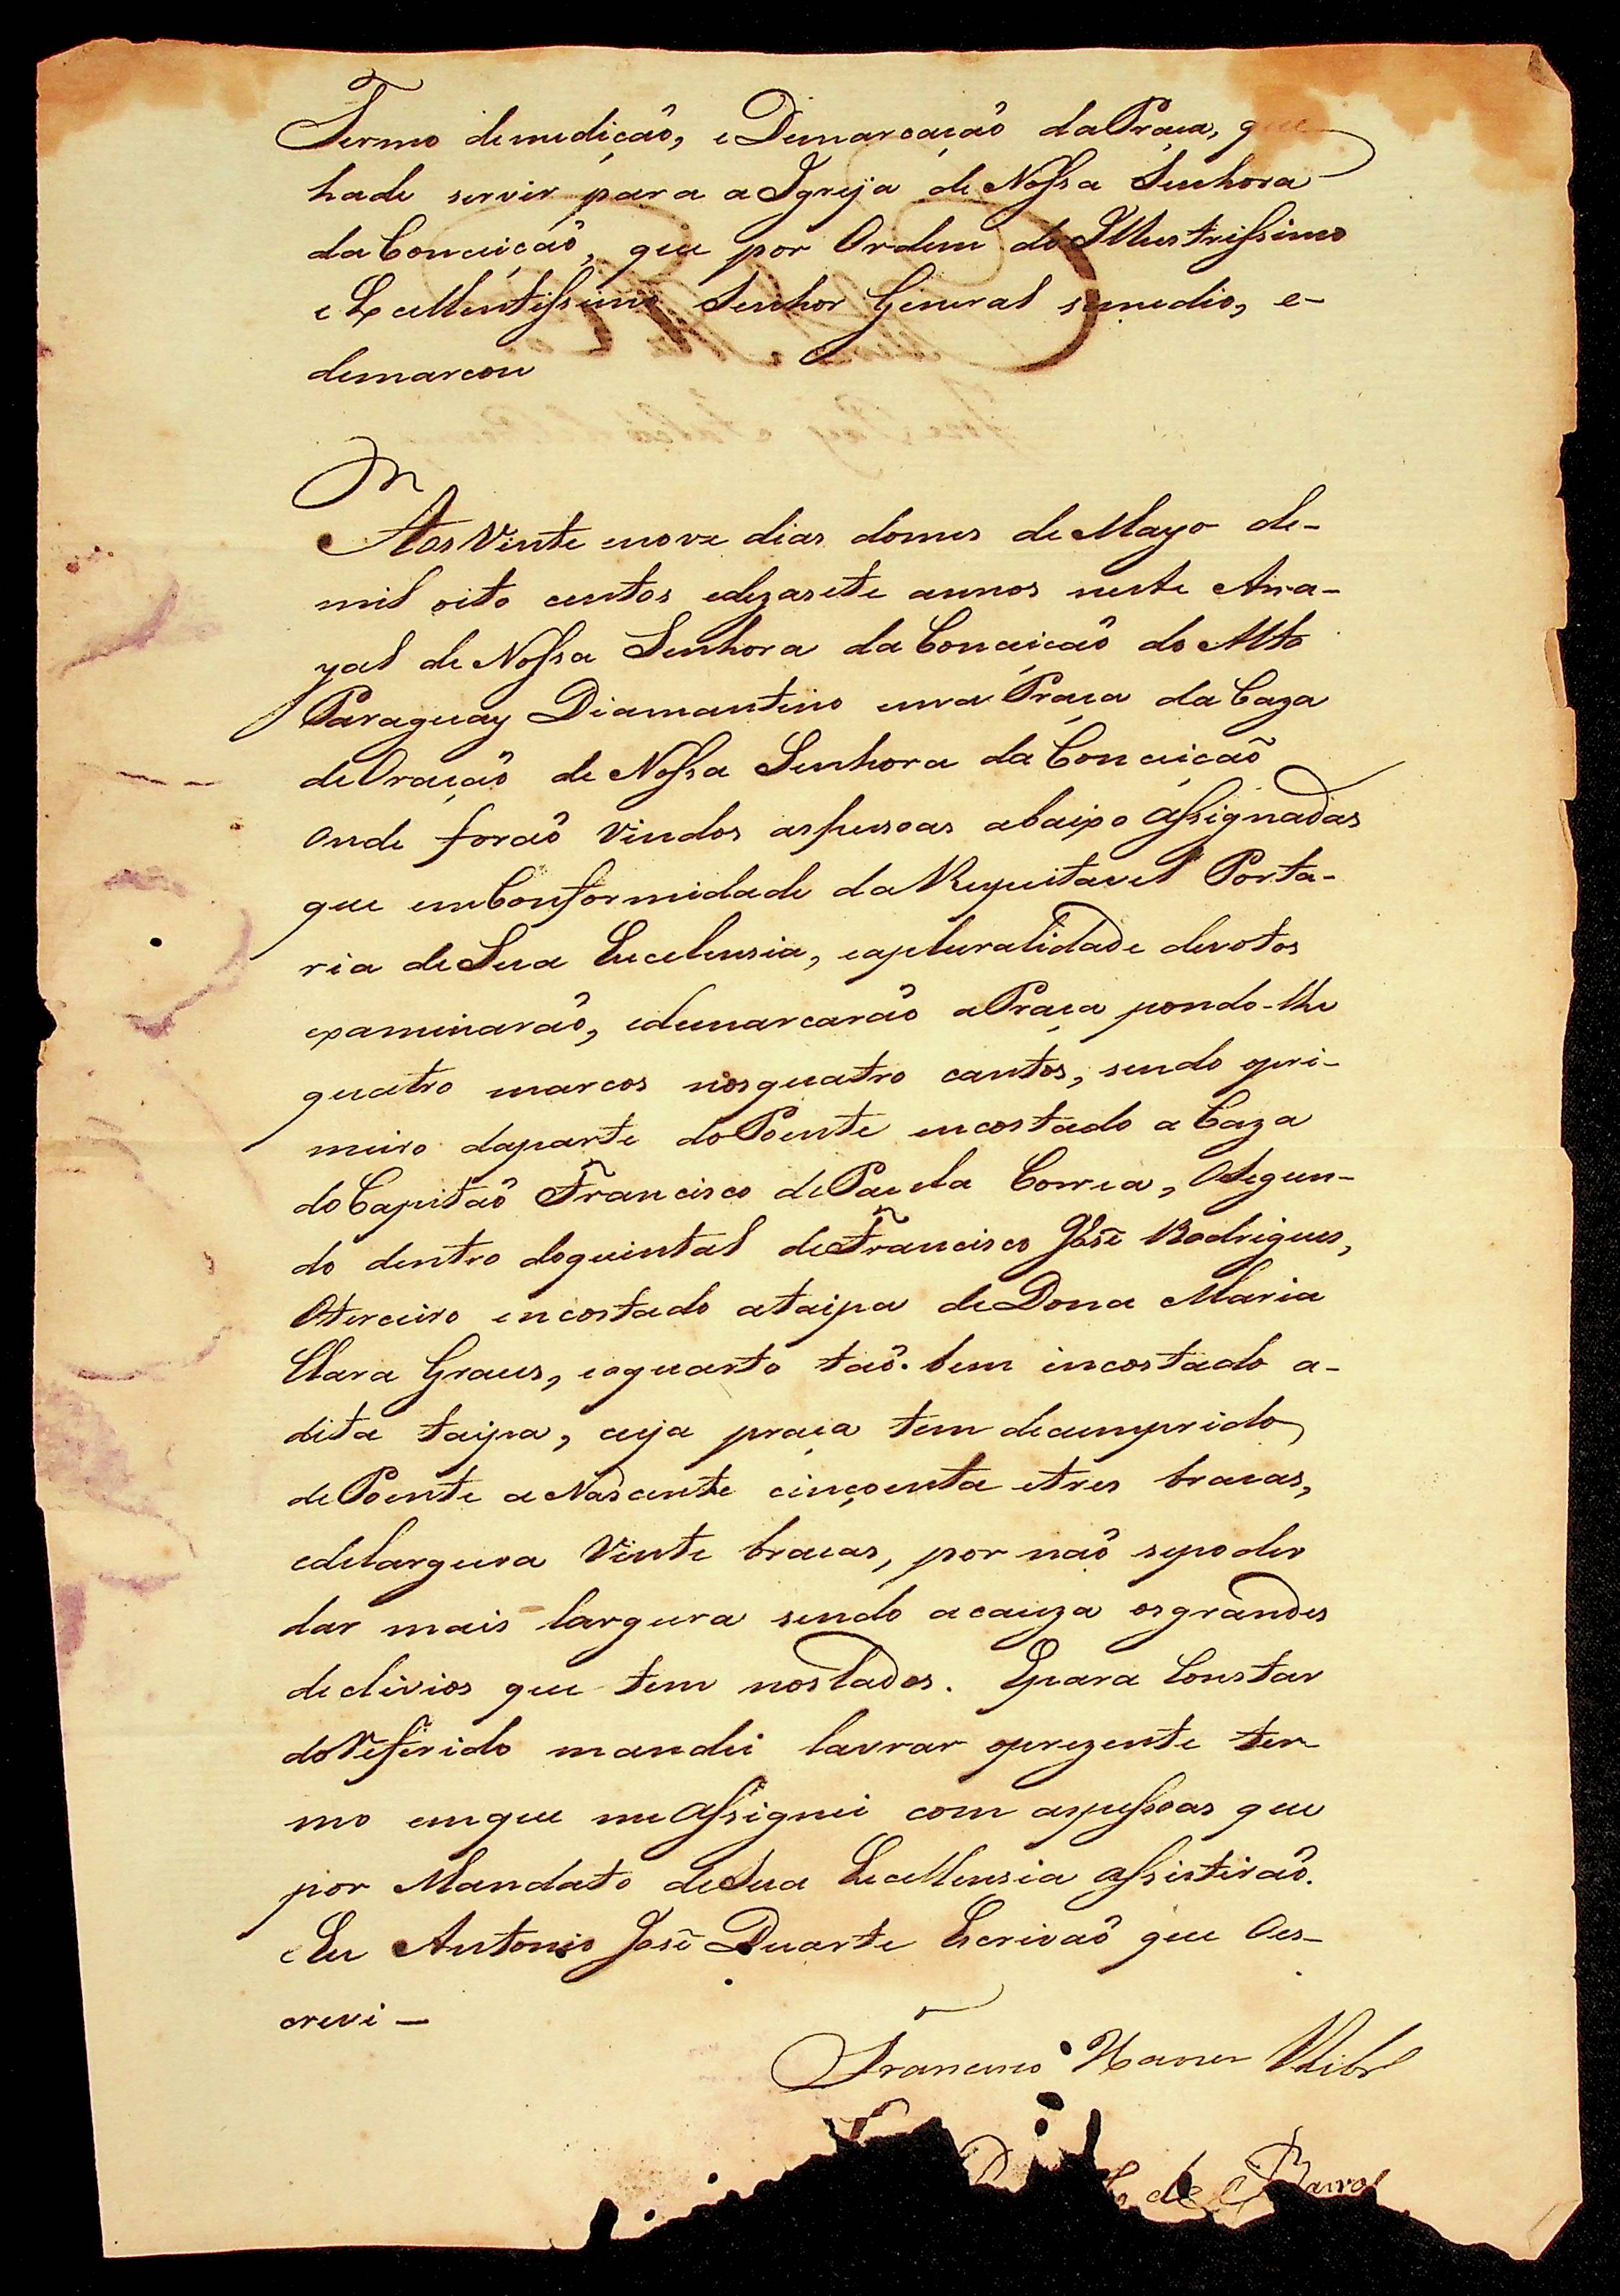 Termo demedição, e Demarcação daPraça, que
hade servir para a Igreja de Nossa Senhora
daConceição, que por Ordem do Illustrissimo
e Excellentissimo Senhor General semedio, e-
demarcou
Aos Vinte enove dias domes de Mayo de-
mil oito centos edezasete annos neste Arra-
yal de Nossa Senhora da Conceição do Alto
Paraguay Diamantino enra Praça da Caza
deOração de Nossa Senhora da Conceição
Onde forão Vindos aspessoas abaixo assignadas
que emConformidade daRespeitavel Porta-
ria deSua Excelensia, eapluralidade devotos
examinarão, edemarcarão aPraça pondo-lhe
quatro marcos nosquatro cantos, sendo opri-
meiro daparte doPoente encostado a Caza
doCapitão Francisco dePaula Correa, OSegun-
do dentro doquintal deFrancisco José Rodrigues,
Oterceiro encostado ataipa deDona Maria
Clara Graces, eoquarto tão.bem incostado a-
dita taipa, cuja praça tem decumprido
dePoente aNascente cinçoenta etres braças,
edelargura Vinte braças, por não sepoder
dar mais largura sendo acauza osgrandes
declivios que tem noslados. Epara Constar
doReferido mandei lavrar oprezente ter-
mo emque meassignei com aspessoas que
por Mandato deSua Excellensia assistirão.
Eu Antonio José Duarte Escrivão que Oes-
crevi —
Francisco Xavier Ribr
de Barros